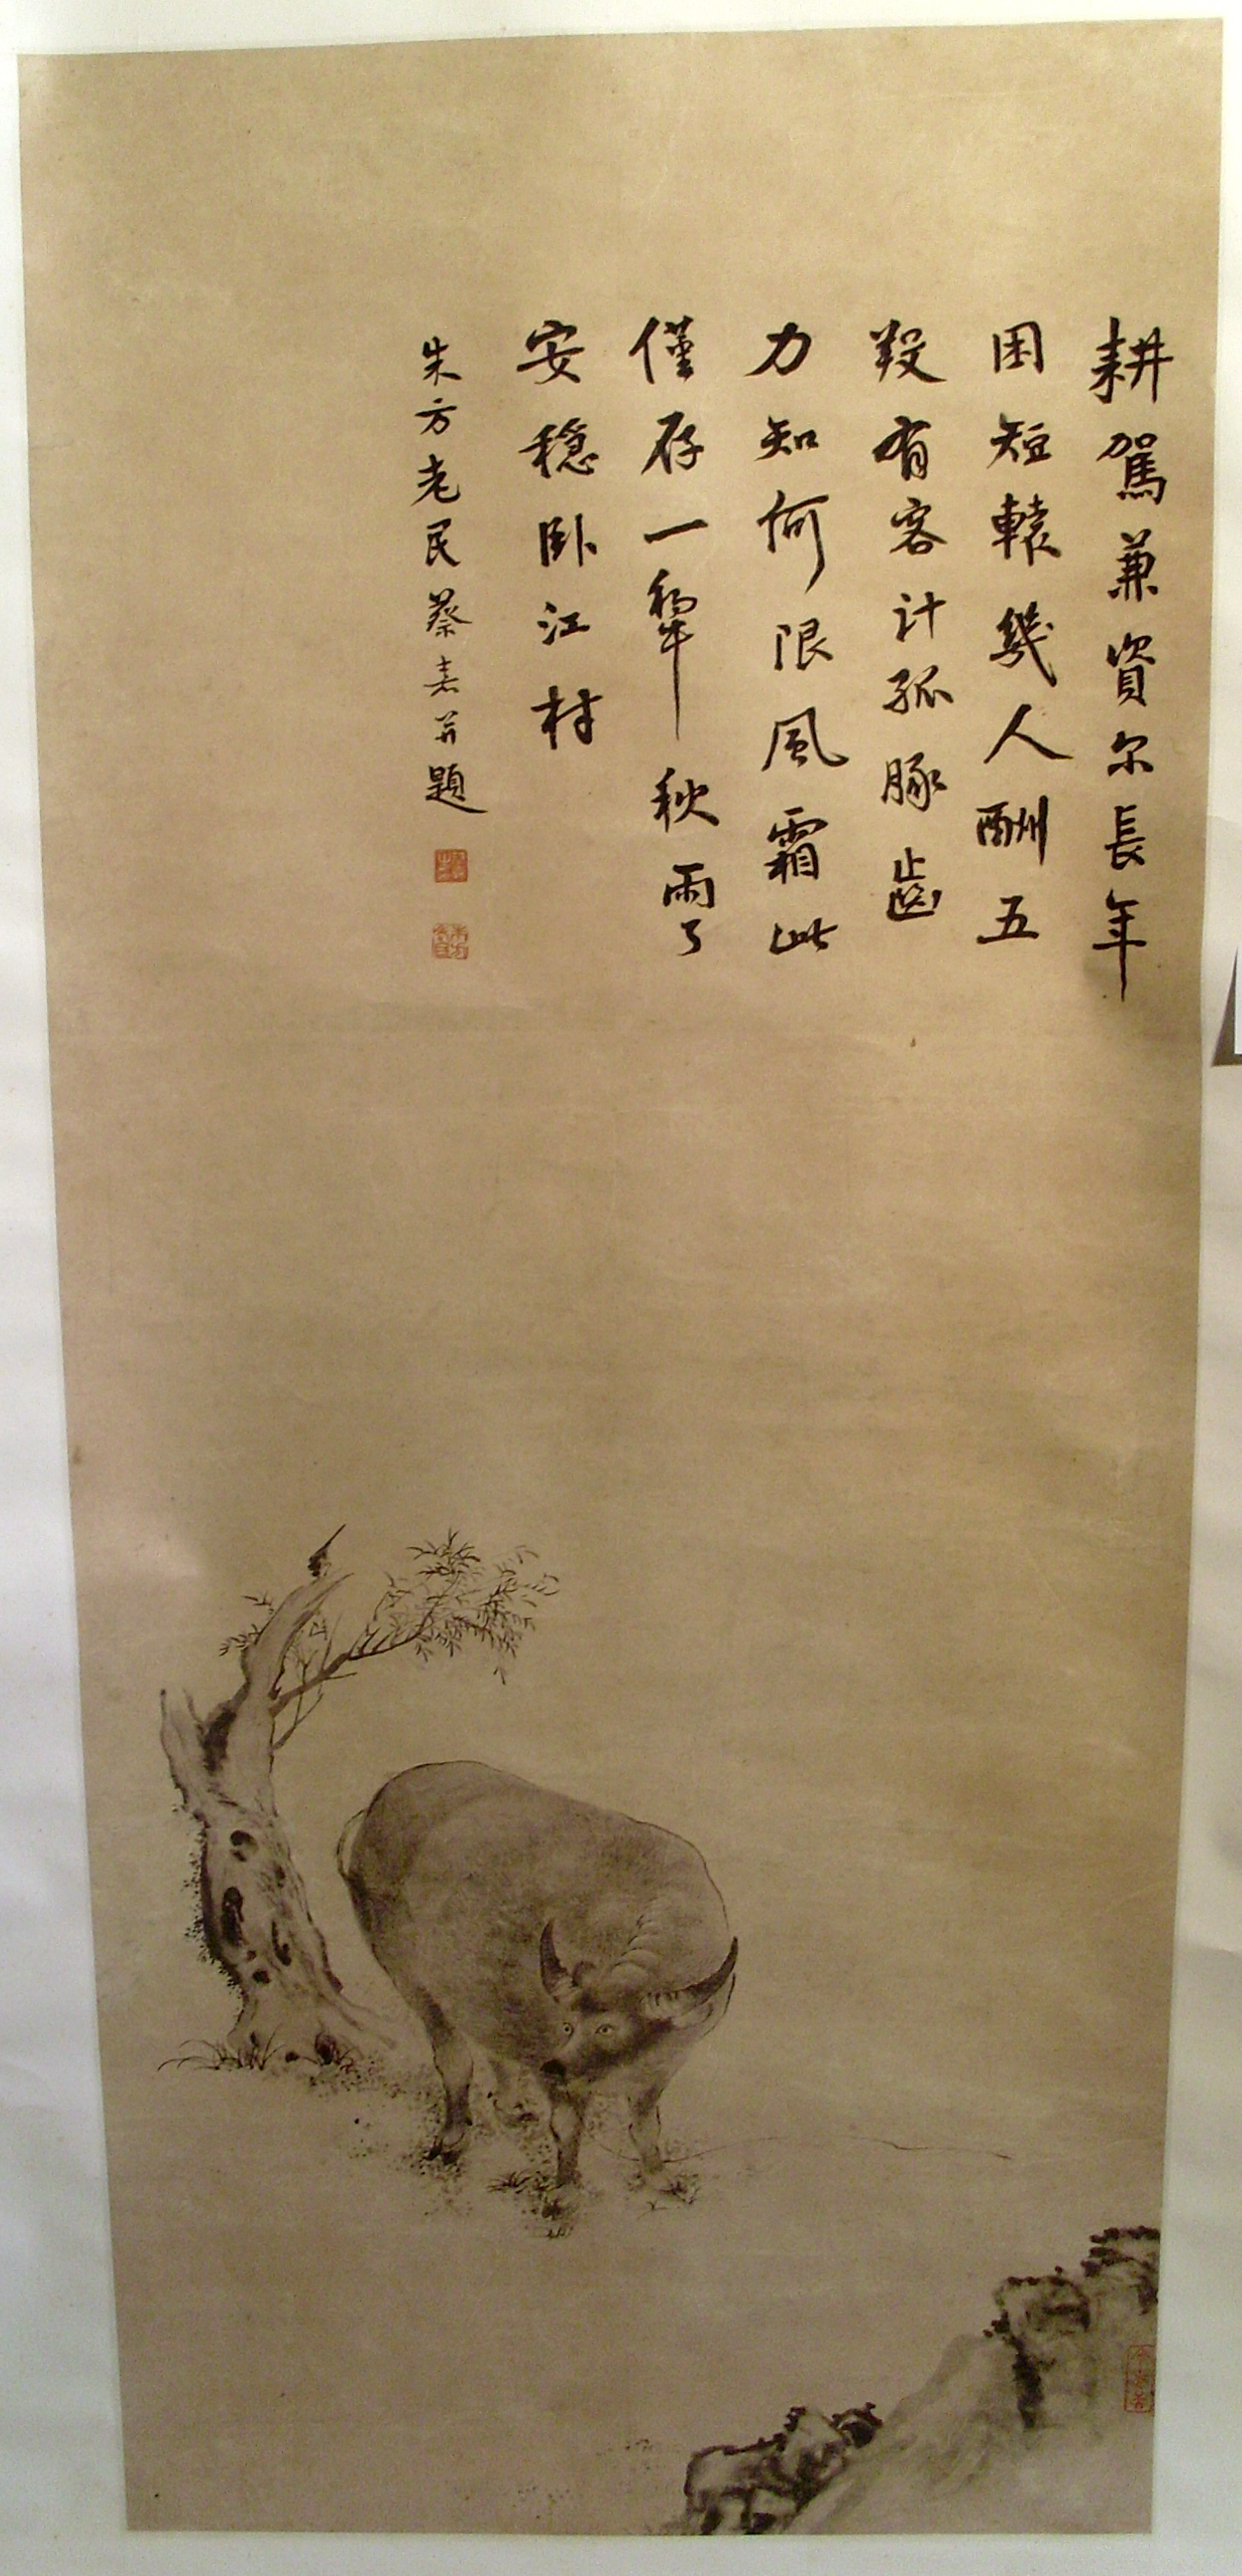 耕駕兼資尔長年
困短轅幾人酬五
羖有客計孤豚齒
力知何限風霜此
僅存一犂秋雨了
安穩臥江村
朱方老民蔡嘉并題